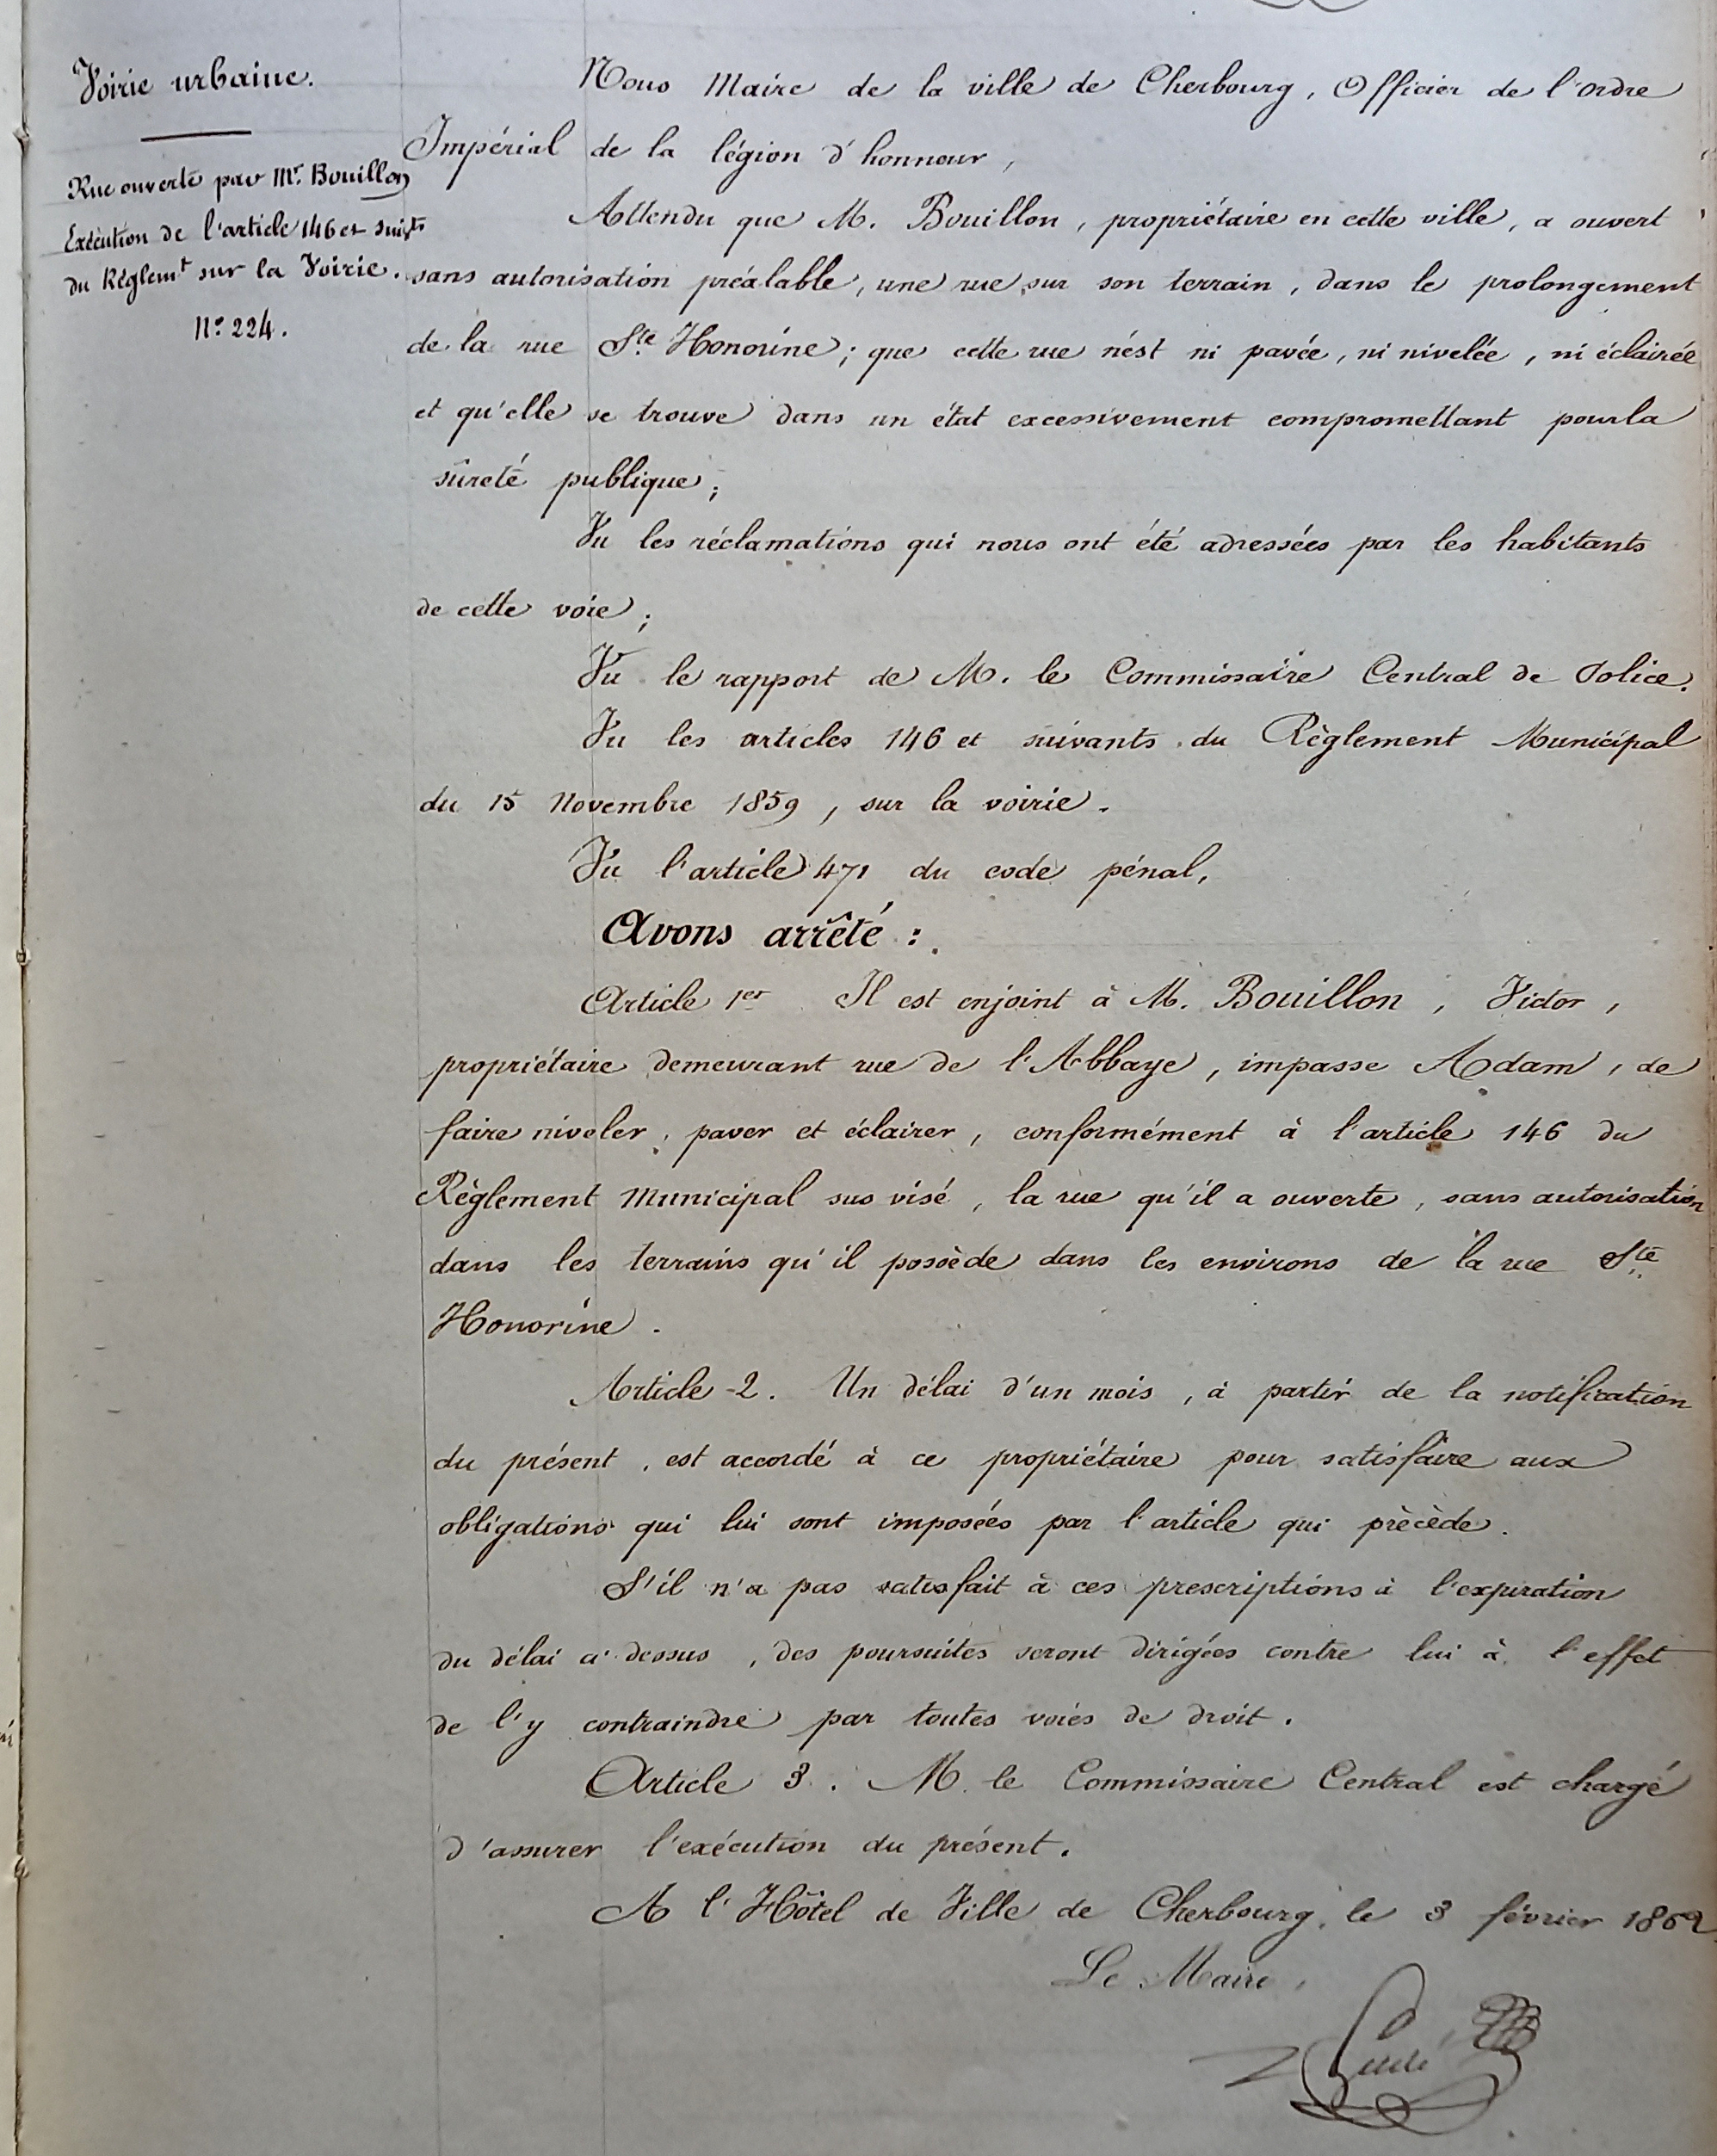 Voirie urbaine.
Rue ouverte par Mr. Bouillon
Exécution de l'article 146 et suivts
du Réglemt sur la Voirie.
N° 224.
Nous Maire de la ville de Cherbourg, Officier de l'ordre
Impérial de la légion d'honneur,
Attendu que M. Bouillon, propriétaire en cette ville, a ouvert
sans autorisation préalable, une rue sur son terrain, dans le prolongement
de la rue Ste Honorine; que cette rue n'est ni pavée, ni nivelée, ni éclairée
et qu'elle se trouve dans un état excessivement compromettant pour la
sûreté publique;
Vu les réclamations qui nous ont été adressées par les habitants
de cette voie;
Vu le rapport de M. le Commissaire Central de Police.
Vu les articles 146 et suivants du Règlement Municipal
du 15 Novembre 1859, sur la voirie.
Vu l'article 471 du code pénal,
Avons arrêté :
Article 1er Il est enjoint à M. Bouillon, Victor,
propriétaire demeurant rue de l'Abbaye, impasse Adam, de
faire niveler, paver et éclairer, conformément à l'article 146 du
Règlement Municipal sus visé, la rue qu'il a ouverte, sans autorisation
dans les terrains qu'il possède dans les environs de la rue Ste
Honorine.
Article 2. Un délai d'un mois, à partir de la notification
du présent, est accordé à ce propriétaire pour satisfaire aux
obligations qui lui sont imposées par l'article qui précède.
S'il n'a pas satisfait à ces prescriptions à l'expiration
du délai ci-dessus, des poursuites seront dirigées contre lui à l'effet
de l'y contraindre par toutes voies de droit.
Article 3. M. le Commissaire Central est chargé
d'assurer l'exécution du présent.
A l'Hôtel de Ville de Cherbourg, le 3 février 1862
Le Maire,